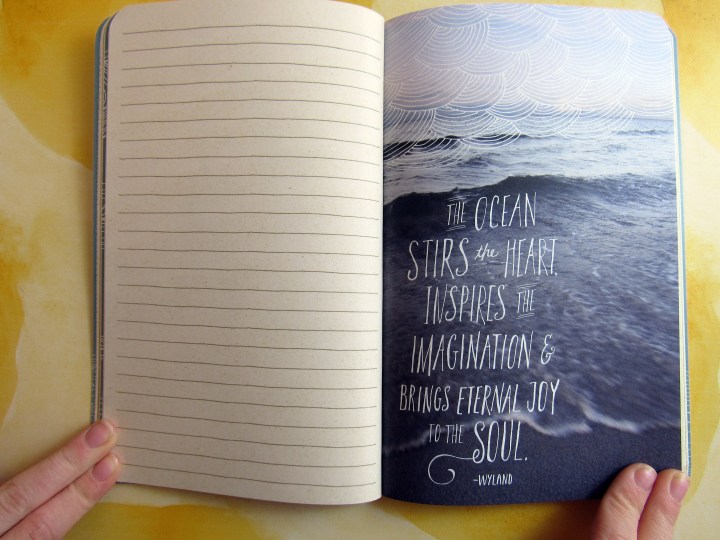 THE OCEAN
STIRS the HEART,
INSPIRES THE
IMAGINATION &
BRINGS ETERNAL JOY
TO THE SOUL.
-WYLAND